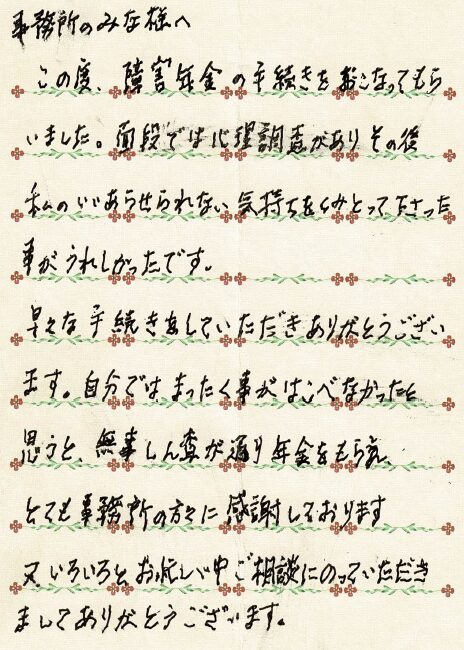 事務所のみな様へ
この度、障害年金の手続きをおこなってもら
いました。面段では心理調査がありその後
私のいいあらせられない気持ちをくみとって下さった
事がうれしかったです。
早々な手続きをしていただきありがとうござい
ます。自分ではまったく事がはこべなかったと
思うと、無事しん査が通り年金をもらえ、
とても事務所の方々に感謝しております
又いろいろとお忙しい中ご相談にのっていただき
ましてありがとうございます。